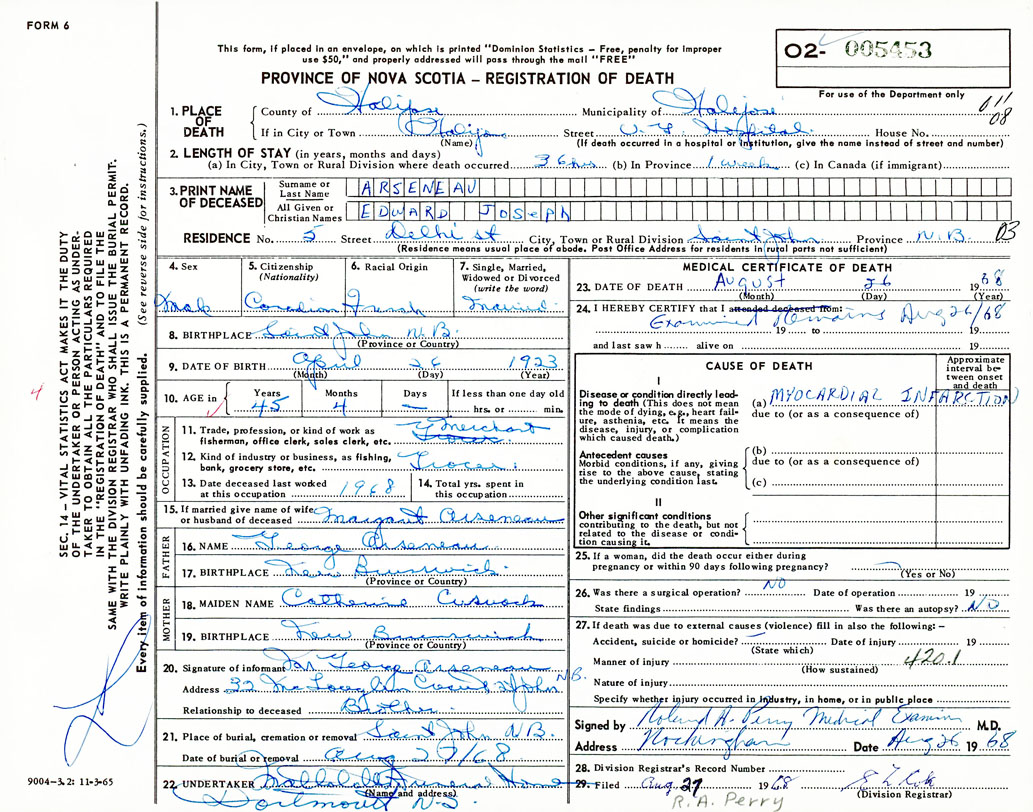 FORM 6
This form, if placed in an envelope, on which is printed "Dominion Statistics — Free, penalty for improper
use $50," and properly addressed will pass through the mail "FREE"
O2- 005453
PROVINCE OF NOVA SCOTIA — REGISTRATION OF DEATH
For use of the Department only
011
08
1. PLACE OF DEATH
County of Halifax Municipality of Halifax
If in City or Town Halifax Street V. G. Hospital House No.
(Name) (If death occurred in a hospital or institution, give the name instead of street and number)
2. LENGTH OF STAY (in years, months and days)
(a) In City, Town or Rural Division where death occurred 36 hrs (b) In Province 1 week (c) In Canada (if immigrant)
3. PRINT NAME OF DECEASED
Surname or Last Name ARSENEAU
All Given or Christian Names EDWARD JOSEPH
RESIDENCE No. 5 Street Delhi St City, Town or Rural Division Saint John Province N.B. 03
(Residence means usual place of abode. Post Office Address for residents in rural parts not sufficient)
4. Sex Male
5. Citizenship (Nationality) Canadian
6. Racial Origin French
7. Single, Married, Widowed or Divorced (write the word) Married
8. BIRTHPLACE Saint John N.B.
(Province or Country)
9. DATE OF BIRTH April 26 1923
(Month) (Day) (Year)
10. AGE in Years 45 Months 4 Days — If less than one day old hrs. or min.
OCCUPATION
11. Trade, profession, or kind of work as fisherman, office clerk, sales clerk, etc. Merchant
12. Kind of industry or business, as fishing, bank, grocery store, etc. Grocer
13. Date deceased last worked at this occupation 1968
14. Total yrs. spent in this occupation
15. If married give name of wife or husband of deceased Margaret Arseneau
FATHER
16. NAME George Arseneau
17. BIRTHPLACE New Brunswick
(Province or Country)
MOTHER
18. MAIDEN NAME Catherine Cusack
19. BIRTHPLACE New Brunswick
(Province or Country)
20. Signature of informant Mr George Arseneau
Address 32 McLaughlin Court St John N.B.
Relationship to deceased Brother
21. Place of burial, cremation or removal Saint John N.B.
Date of burial or removal Aug 27/68
22. UNDERTAKER Funeral Home
(Name and address)
Dartmouth N-S.
MEDICAL CERTIFICATE OF DEATH
23. DATE OF DEATH AUGUST 26 1968
(Month) (Day) (Year)
24. I HEREBY CERTIFY that I attended deceased from:
Examined Remains Aug 26/68
19 to 19
and last saw h alive on 19
CAUSE OF DEATH
Approximate interval between onset and death
I
Disease or condition directly leading to death (This does not mean the mode of dying, e.g., heart failure, asthenia, etc. It means the disease, injury, or complication which caused death.)
(a) MYOCARDIAL INFARCTION
due to (or as a consequence of)
Antecedent causes
Morbid conditions, if any, giving rise to the above cause, stating the underlying condition last.
(b)
due to (or as a consequence of)
(c)
II
Other significant conditions
contributing to the death, but not related to the disease or condition causing it.
25. If a woman, did the death occur either during pregnancy or within 90 days following pregnancy?
(Yes or No)
26. Was there a surgical operation? NO Date of operation 19
State findings Was there an autopsy? NO
27. If death was due to external causes (violence) fill in also the following: —
Accident, suicide or homicide? — Date of injury 19
(State which)
Manner of injury 420.1
(How sustained)
Nature of injury
Specify whether injury occurred in industry, in home, or in public place
Signed by Roland A. Perry Medical Examiner M.D.
Address Rockingham Date Aug 26 1968
28. Division Registrar's Record Number
29. Filed Aug 27 1968
(Division Registrar)
R. A. Perry
SEC. 14 — VITAL STATISTICS ACT MAKES IT THE DUTY
OF THE UNDERTAKER OR PERSON ACTING AS UNDER-
TAKER TO OBTAIN ALL THE PARTICULARS REQUIRED
IN THE "REGISTRATION OF DEATH" AND TO FILE THE
SAME WITH THE DIVISION REGISTRAR WHO SHALL ISSUE THE BURIAL PERMIT.
WRITE PLAINLY WITH UNFADING INK. THIS IS A PERMANENT RECORD.
Every item of information should be carefully supplied. (See reverse side for instructions.)
4
9004—3.2: 11-3-65